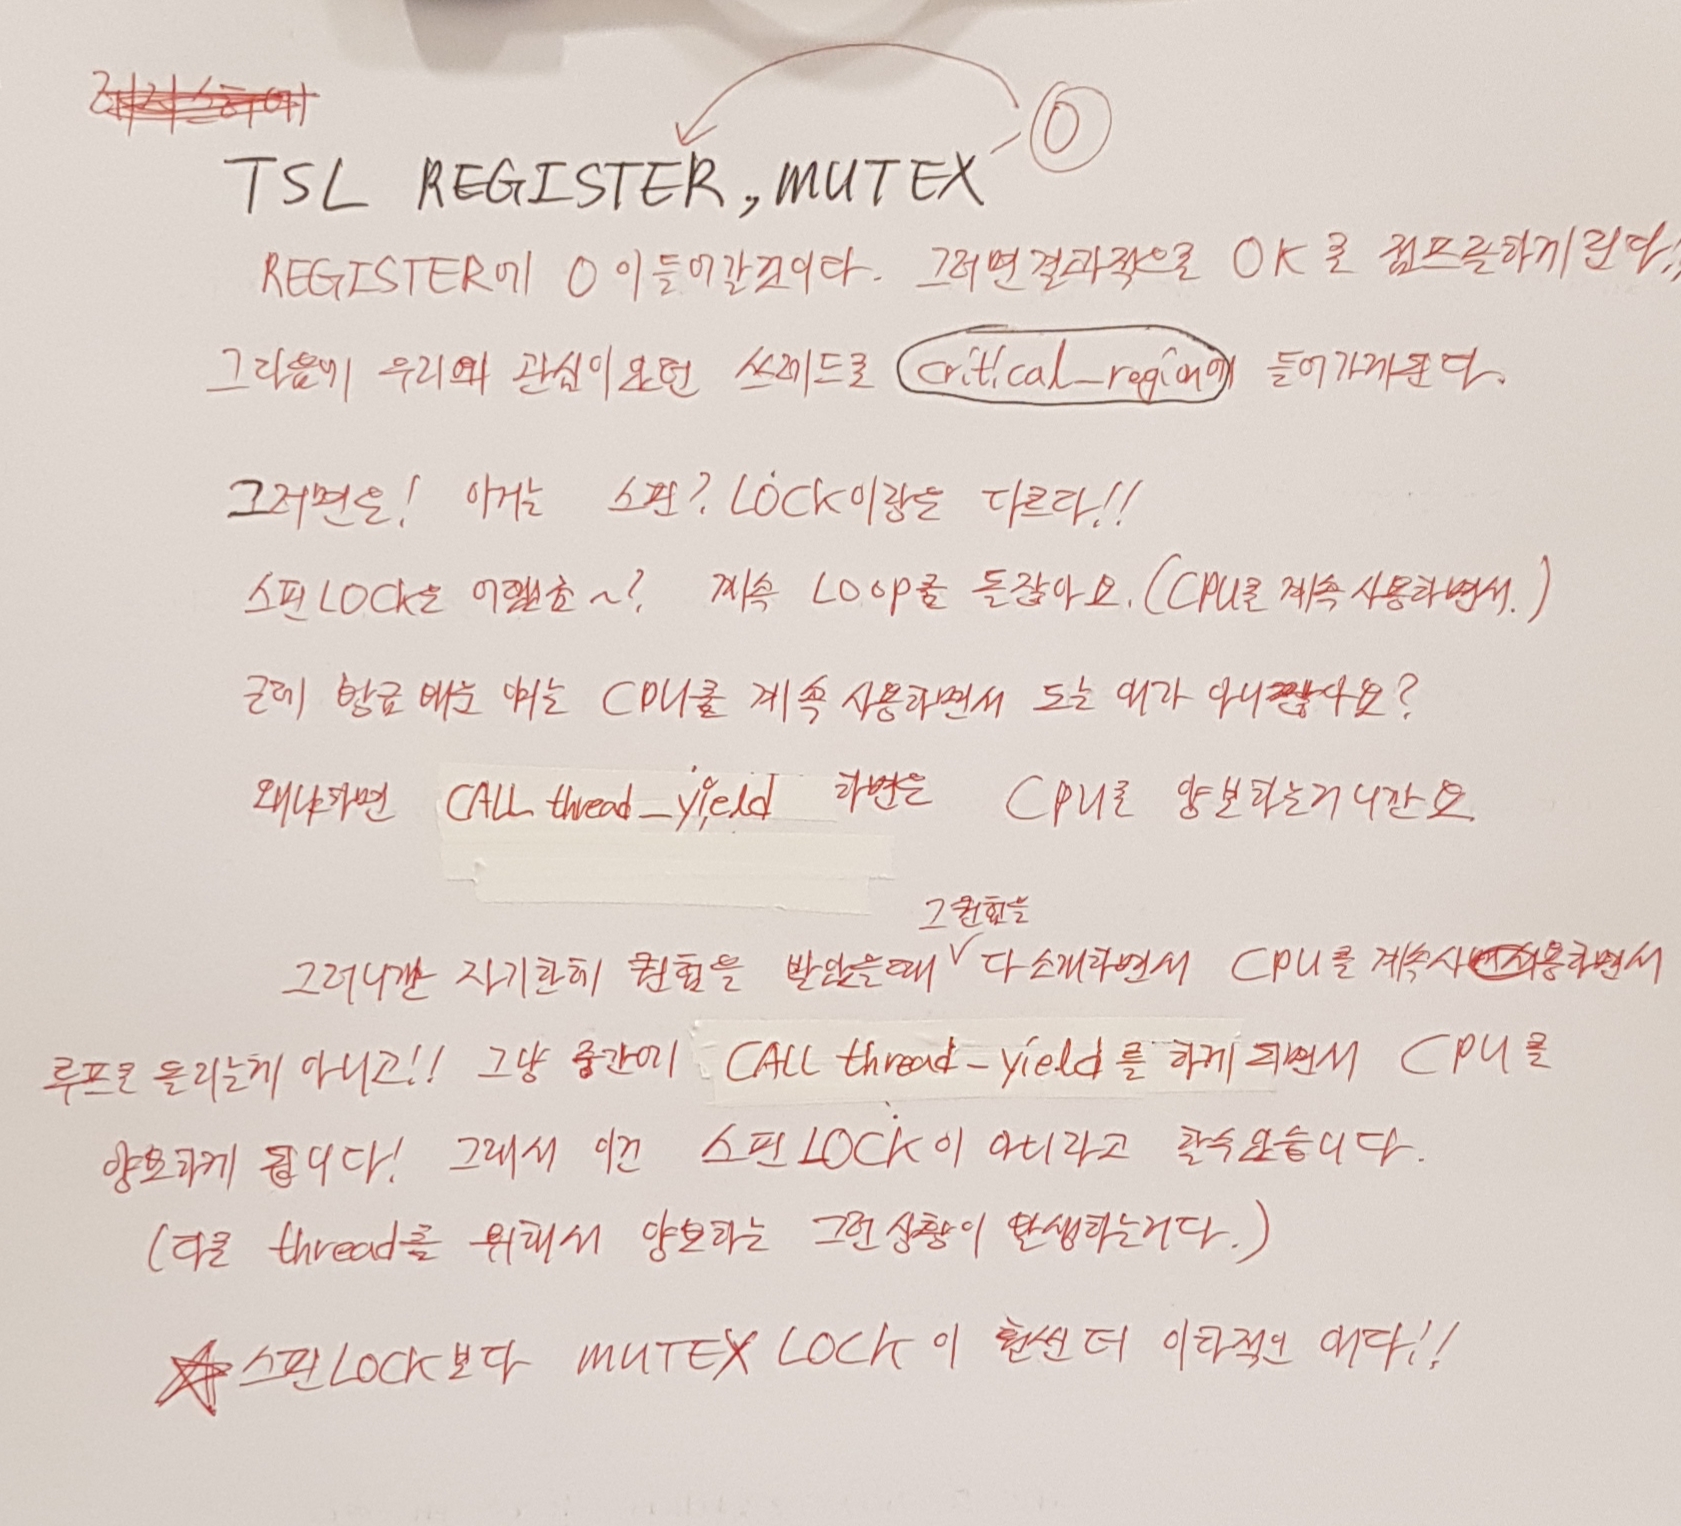 0
TSL REGISTER, MUTEX
REGISTER에 0이 들어갈것이다. 그러면결과적으로 OK로 점프를하게된다!!
그다음에 우리의 관심이였던 쓰레드로 critical_region에 들어가게된다.
그러면은! 이거는 스핀? LOCK이랑은 다르다!!
스핀LOCK은 어땠죠~? 계속 LOOP를 돌잖아요. (CPU를 계속사용하면서.)
근데 방금 배운 얘는 CPU를 계속사용하면서 도는 애가 아니잖아요?
왜냐하면 CALL thread_yield 하면은 CPU를 양보하는거니깐요
그권한을
그러니깐 자기한테 권한을 받았을때 ∨ 다소개하면서 CPU를 계속사용하면서
루프를 돌리는게 아니고!! 그냥 중간에 CALL thread_yield를 하게 되면서 CPU를
양보하게 됩니다! 그래서 이건 스핀LOCK이 아니라고 할수있습니다.
(다른 thread를 위해서 양보하는 그런상황이 발생하는거다.)
☆스핀LOCK보다 MUTEX LOCK이 훨씬 더 이타적인 애다!!